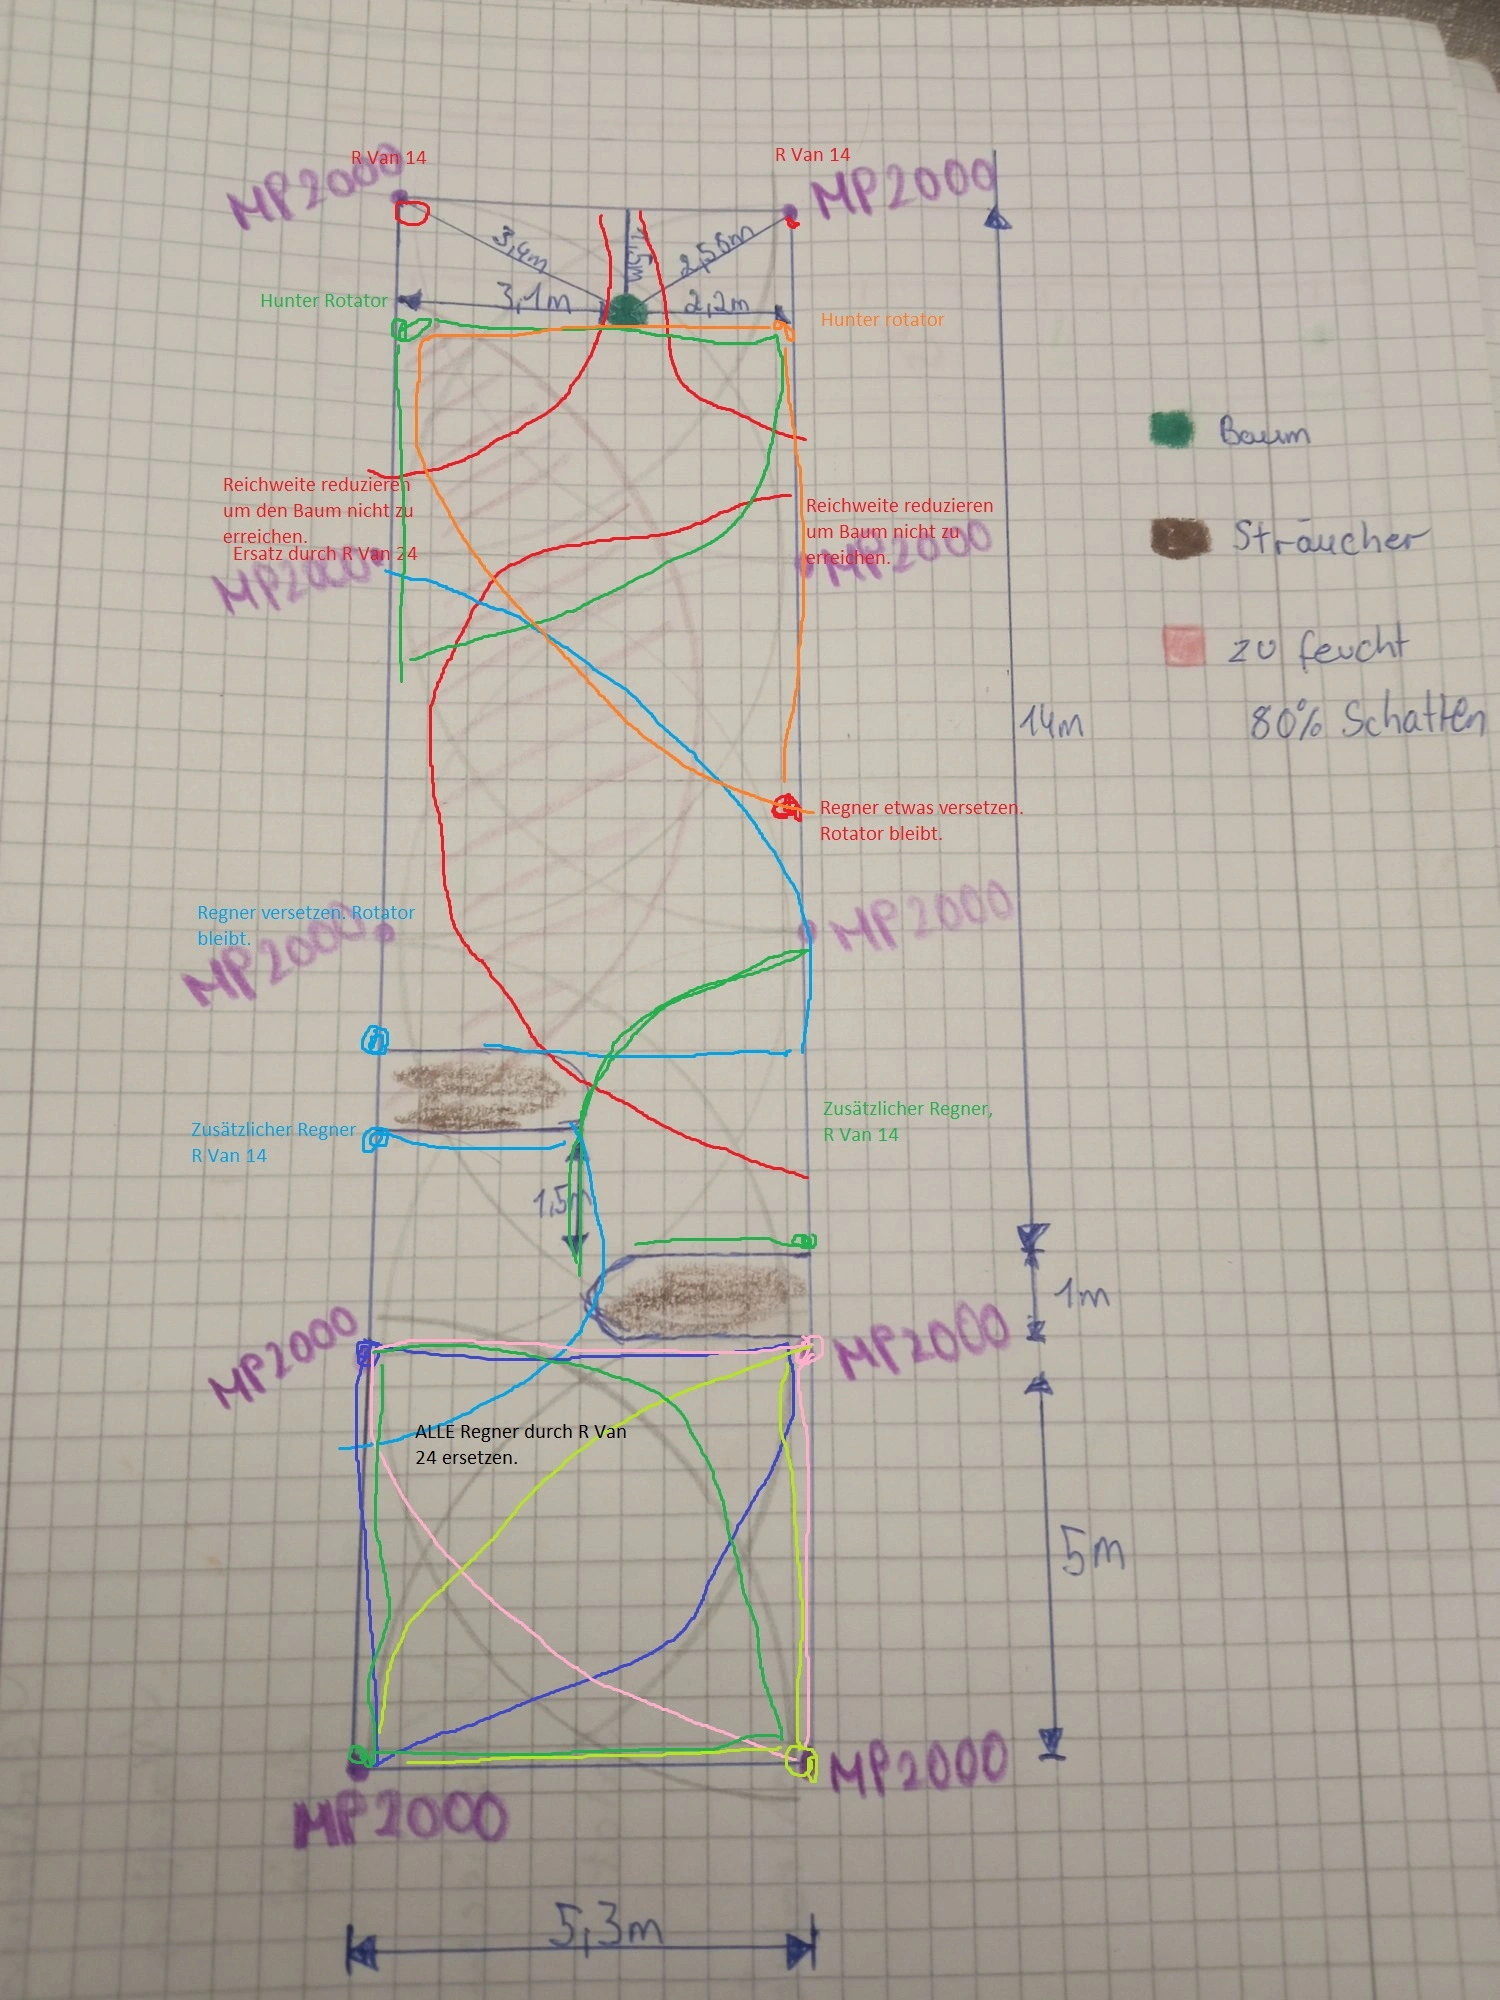 R Van 14
R Van 14
MP2000
MP2000
3,4m
1,5m
2,56m
Hunter Rotator
3,1m
2,2m
Hunter rotator
Baum
Reichweite reduzieren
um den Baum nicht zu
erreichen.
Ersatz durch R Van 24
MP2000
Reichweite reduzieren
um Baum nicht zu
erreichen.
MP2000
Sträucher
zu feucht
80% Schatten
14m
Regner etwas versetzen.
Rotator bleibt.
Regner versetzen. Rotator
bleibt.
MP2000
MP2000
Zusätzlicher Regner
R Van 14
Zusätzlicher Regner,
R Van 14
1,5m
1m
MP2000
MP2000
ALLE Regner durch R Van
24 ersetzen.
5m
MP2000
MP2000
5,3m